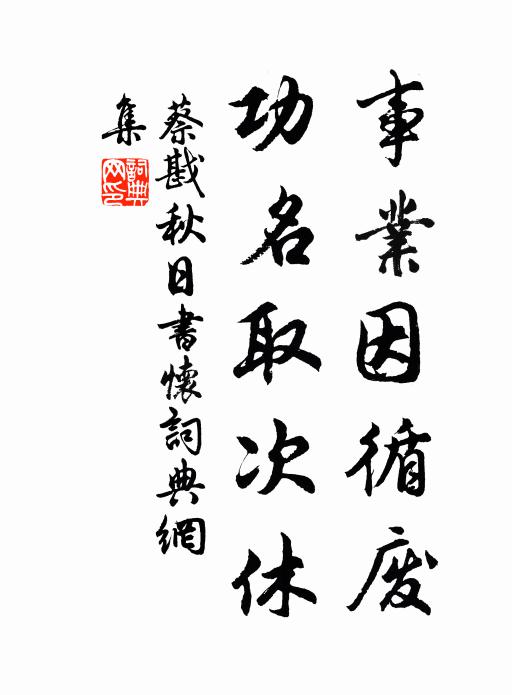 事業因循廢
功名取次休
蔡戡秋日書懷詞典網
集
詞典
网印